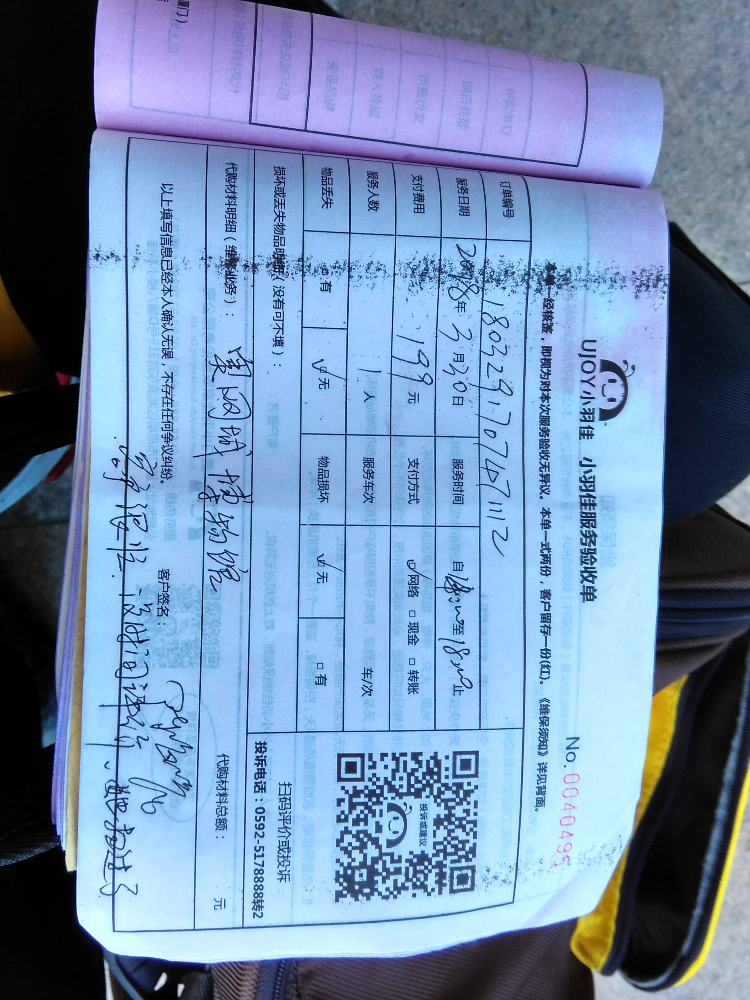 UJOY小羽佳 小羽佳服务验收单
No.0040495
本单一经核签，即视为对本次服务验收无异议。本单一式两份，客户留存一份(红)。《维保须知》详见背面。
订单编号 1803291707471112
服务日期 2018年3月30日 服务时间 自 至 止
支付费用 199元 支付方式 ☑网络 □现金 □转账
服务人数 1人 服务车次 车/次
物品丢失 □有 ☑无 物品损坏 ☑无 □有
损坏或丢失物品明细（没有可不填）：
扫码评价或投诉
投诉电话：0592-5178888转2
投诉或建议
代购材料明细（维修业务）： 博物馆
代购材料总额： 元
以上填写信息已经本人确认无误，不存在任何争议纠纷。 客户签名：